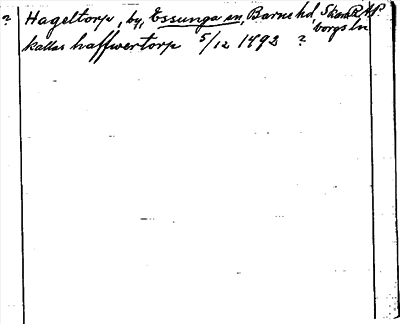 ? Hageltorp, by, Essunga sn, Barne hd, Skara
borgs ln
kallas haffwertorp 5/12 1492 ?